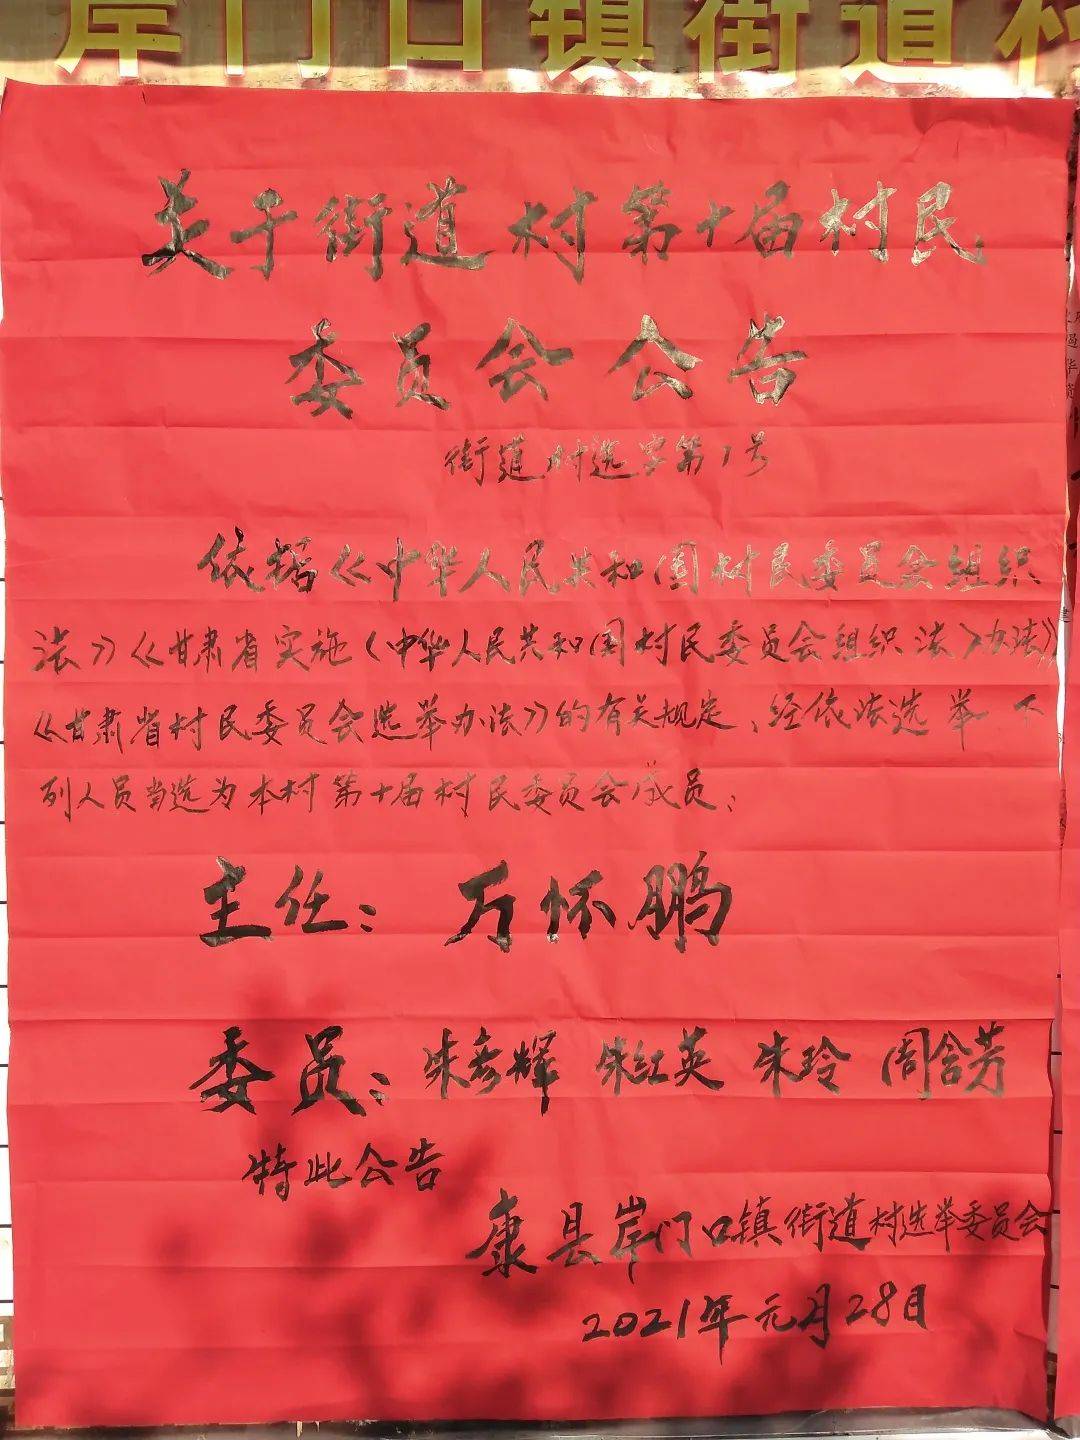 岸门口镇街道村
关于街道村第十届村民
委员会公告
街道村选字第1号
依据《中华人民共和国村民委员会组织
法》《甘肃省实施〈中华人民共和国村民委员会组织法〉办法》
《甘肃省村民委员会选举办法》的有关规定、经依法选举 下
列人员当选为本村第十届村民委员会成员：
主任：万怀鹏
委员：朱彦辉 朱红英 朱玲 周含芳
特此公告
康县岸门口镇街道村选举委员会
2021年元月28日